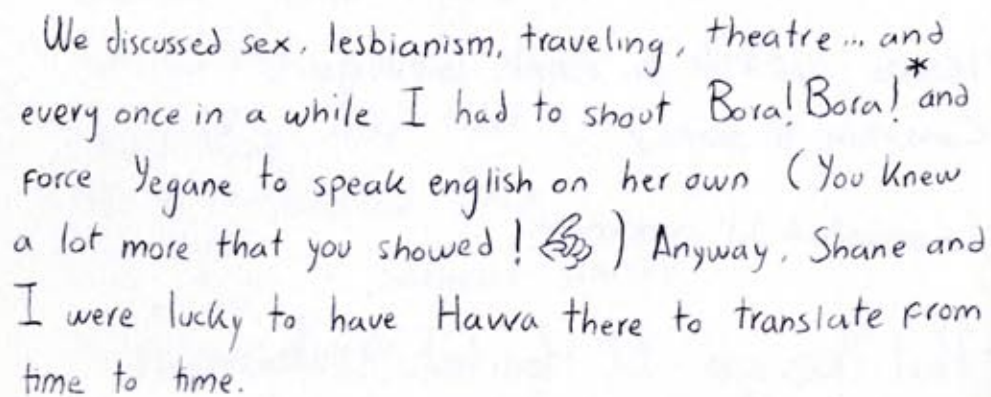 We discussed sex, lesbianism, traveling, theatre... and
every once in a while I had to shout Bora! Bora!* and
force Yegane to speak english on her own (You knew
a lot more that you showed! ) Anyway, Shane and
I were lucky to have Havva there to translate from
time to time.